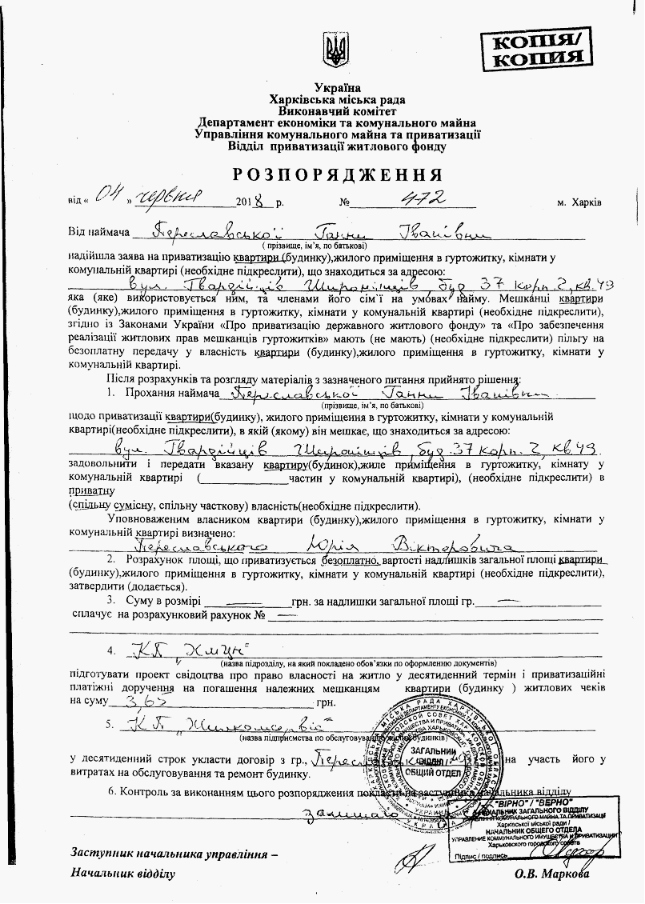 КОПІЯ/
КОПИЯ
Україна
Харківська міська рада
Виконавчий комітет
Департамент економіки та комунального майна
Управління комунального майна та приватизації
Відділ приватизації житлового фонду
РОЗПОРЯДЖЕННЯ
від « 04 » червня 2018 р. № 472 м. Харків
Від наймача Переславської Ганни Іванівни
( прізвище, ім'я, по батькові)
надійшла заява на приватизацію квартири (будинку),жилого приміщення в гуртожитку, кімнати у
комунальній квартирі (необхідне підкреслити), що знаходиться за адресою:
вул. Гвардійців Широнінців, буд 37 корп. 2, кв. 49
яка (яке) використовується ним, та членами його сім'ї на умовах найму. Мешканці квартири
(будинку),жилого приміщення в гуртожитку, кімнати у комунальній квартирі (необхідне підкреслити),
згідно із Законами України «Про приватизацію державного житлового фонду» та «Про забезпечення
реалізації житлових прав мешканців гуртожитків» мають (не мають) (необхідне підкреслити) пільгу на
безоплатну передачу у власність квартири (будинку),жилого приміщення в гуртожитку, кімнати у
комунальній квартирі.
Після розрахунків та розгляду матеріалів з зазначеного питання прийнято рішення:
1. Прохання наймача Переславської Ганни Іванівни
(прізвище, ім'я, по батькові)
щодо приватизації квартири(будинку), жилого приміщення в гуртожитку, кімнати у комунальній
квартирі(необхідне підкреслити), в якій (якому) він мешкає, що знаходиться за адресою:
вул. Гвардійців Широнінців, буд. 37 корп. 2, кв. 49
задовольнити і передати вказану квартиру(будинок),жиле приміщення в гуртожитку, кімнату у
комунальній квартирі (____________частин у комунальній квартирі), (необхідне підкреслити) в
приватну
(спільну сумісну, спільну часткову) власність(необхідне підкреслити).
Уповноваженим власником квартири (будинку),жилого приміщення в гуртожитку, кімнати у
комунальній квартирі визначено:
Переславського Юрія Вікторовича
2. Розрахунок площі, що приватизується безоплатно, вартості надлишків загальної площі квартири
(будинку),жилого приміщення в гуртожитку, кімнати у комунальній квартирі (необхідне підкреслити),
затвердити (додається).
3. Суму в розмірі — грн. за надлишки загальної площі гр. —
сплачує на розрахунковий рахунок № —
4. КП
(назва підрозділу, на який покладено обов'язки по оформленню документів)
підготувати проект свідоцтва про право власності на житло у десятиденний термін і приватизаційні
платіжні доручення на погашення належних мешканцям квартири (будинку ) житлових чеків
на суму 3,63 грн.
5. КП „Жилкомсервіс"
(назва підприємства по обслуговуванню жилих будинків)
у десятиденний строк укласти договір з гр., на участь його у
витратах на обслуговування та ремонт будинку.
6. Контроль за виконанням цього розпорядження покласти на заступника начальника відділу
залишаю
ЗАГАЛЬНИЙ
ВІДДІЛ
ОБЩИЙ ОТДЕЛ
"ВІРНО" / "ВЕРНО"
НАЧАЛЬНИК ЗАГАЛЬНОГО ВІДДІЛУ
УПРАВЛІННЯ КОМУНАЛЬНОГО МАЙНА ТА ПРИВАТИЗАЦІЇ
Харківської міської ради /
НАЧАЛЬНИК ОБЩЕГО ОТДЕЛА
УПРАВЛЕНИЕ КОММУНАЛЬНОГО ИМУЩЕСТВА И ПРИВАТИЗАЦИИ
Харьковского городского совета
Підпис / подпись
Заступник начальника управління –
Начальник відділу О.В. Маркова